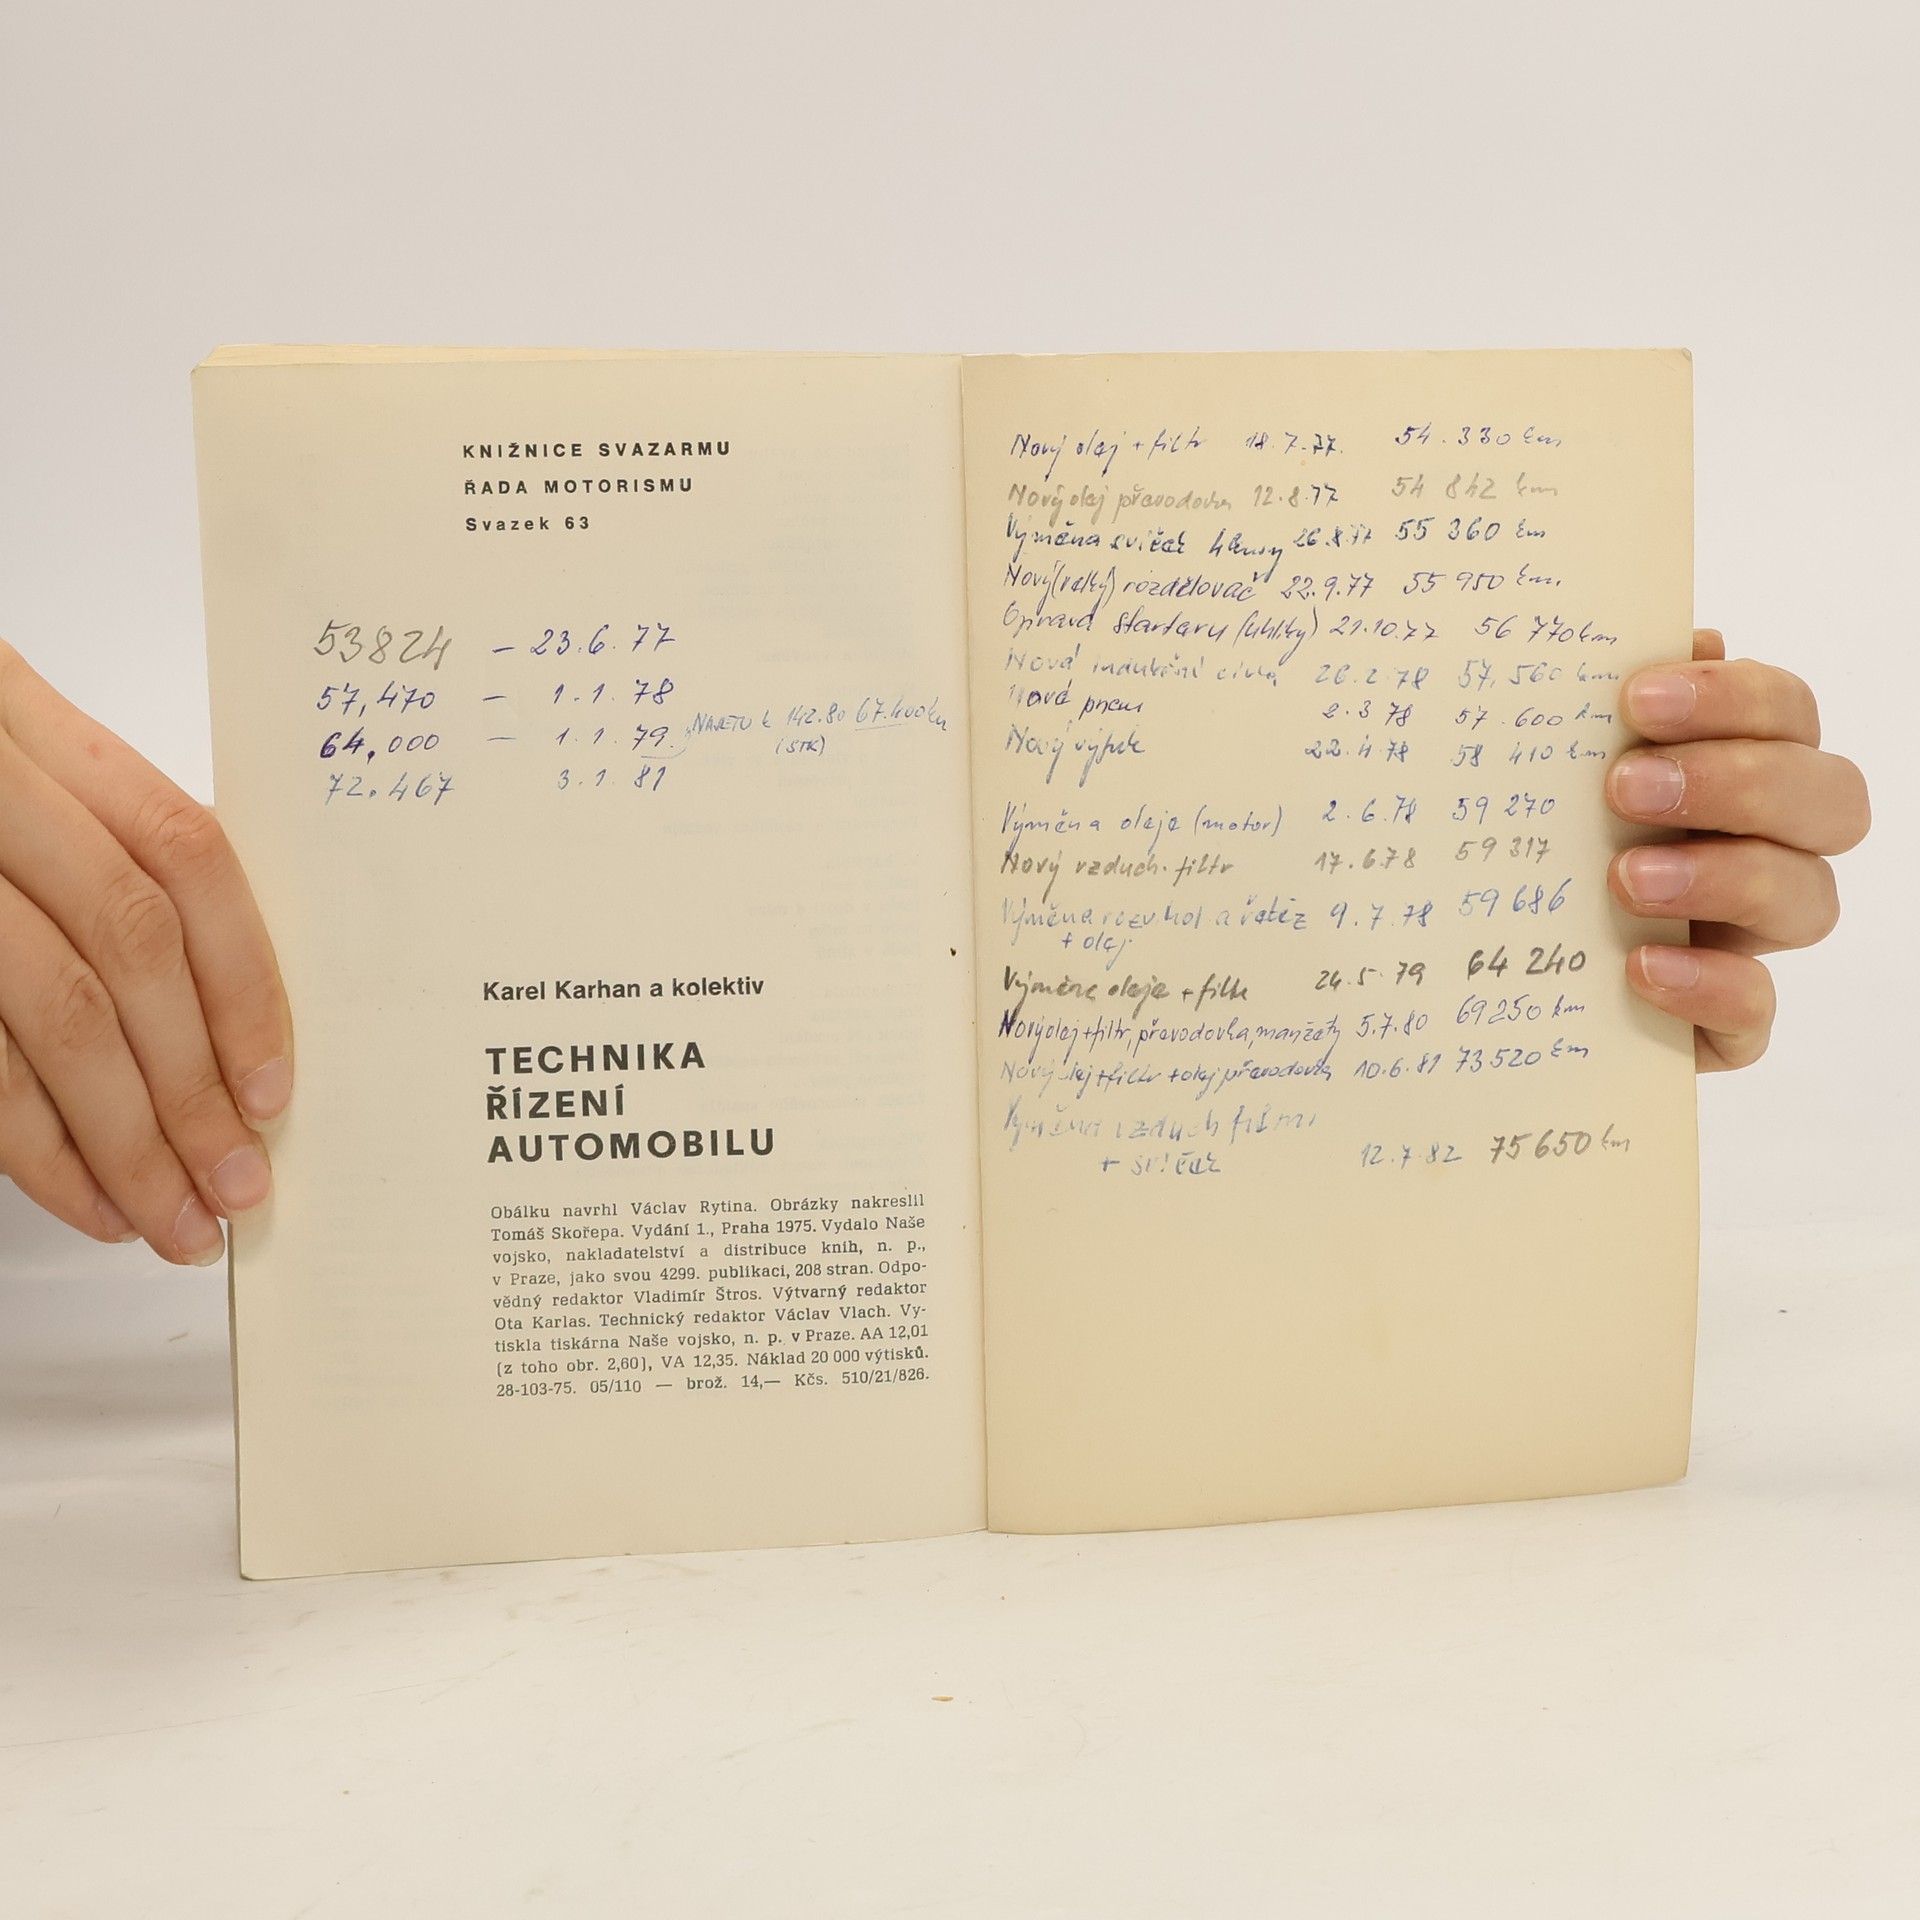 KNIŽNICE SVAZARMU
ŘADA MOTORISMU
Svazek 63
53824 – 23.6.77
57,470 – 1.1.78
64,000 – 1.1.79. NAJETO K 14.2.80 67.400 km
(STK)
72.467 3.1.81
Karel Karhan a kolektiv
TECHNIKA
ŘÍZENÍ
AUTOMOBILU
Obálku navrhl Václav Rytina. Obrázky nakreslil
Tomáš Skořepa. Vydání 1., Praha 1975. Vydalo Naše
vojsko, nakladatelství a distribuce knih, n. p.,
v Praze, jako svou 4299. publikaci, 208 stran. Odpo-
vědný redaktor Vladimír Štros. Výtvarný redaktor
Ota Karlas. Technický redaktor Václav Vlach. Vy-
tiskla tiskárna Naše vojsko, n. p. v Praze. AA 12,01
(z toho obr. 2,60), VA 12,35. Náklad 20 000 výtisků.
28-103-75. 05/110 — brož. 14,— Kčs. 510/21/826.
Nový olej + filtr 18.7.77. 54.330 km
Nový olej převodovka 12.8.77 54 842 km
Výměna svíček 26.8.77 55 360 km
Nový (velký) rozdělovač 22.9.77 55 950 km.
Oprava startaru (uhlíky) 21.10.77 56 770 km
Nová indukční cívka 26.2.78 57,560 km
Nové pneu 2.3.78 57.600 km
Nový výfuk 22.4.78 58 410 km
Výměna oleje (motor) 2.6.78 59 270
Nový vzduch. filtr 17.6.78 59 317
Výměna rozv. kol a řetěz 9.7.78 59 686
+ olej
Výměna oleje + filtr 24.5.79 64 240
Nový olej+filtr, převodovka, manžety 5.7.80 69250 km
Nový olej+filtr +olej převodovka 10.6.81 73520 km
Výměna vzduch filtru
+ svíček 12.7.82 75650 km